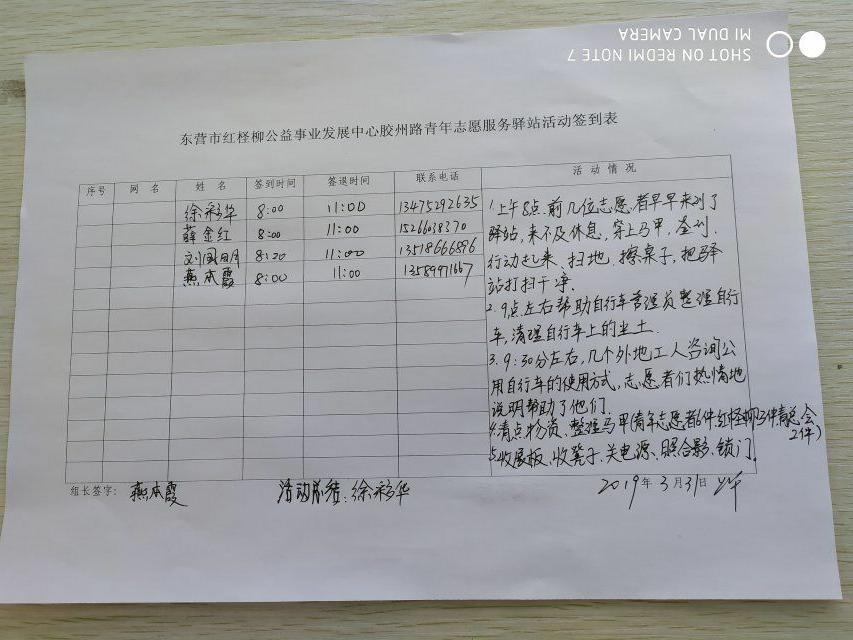 SHOT ON REDMI NOTE 7
MI DUAL CAMERA
东营市红柽柳公益事业发展中心胶州路青年志愿服务驿站活动签到表
序号 网 名 姓 名 签到时间 签退时间 联系电话 活 动 情 况
徐彩华 8:00 11:00 13475292635
薛金红 8:00 11:00 15266038370
刘国明 8:20 11:00 13518666896
燕本霞 8:00 11:00 13589971667
1.上午8点前几位志愿者早早来到了
驿站,来不及休息,穿上马甲,签到,
行动起来、扫地、擦桌子,把驿
站打扫干净.
2.9点左右帮助自行车管理员整理自行
车,清理自行车上的尘土.
3.9:30分左右,几个外地工人咨询公
用自行车的使用方式,志愿者们热情地
说明帮助了他们.
4.清点物资、整理马甲(青年志愿者6件,红柽柳3件,青总会
2件)
5.收展板、收凳子、关电源、照合影、锁门.
组长签字: 燕本霞 活动总结:徐彩华 2019年3月31日